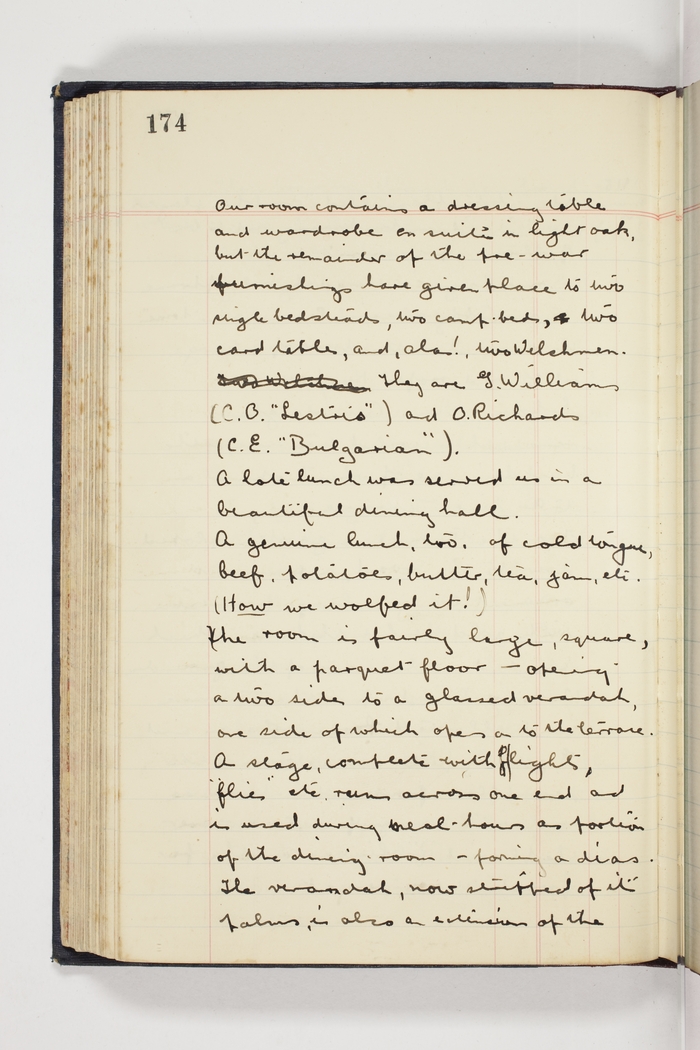 174
Our room contains a dressing table
and wardrobe en suite in light oak,
but the remainder of the pre-war
furnishings have given place to two
single bedsteads, two camp-beds, two
card tables, and, alas!, two Welshmen.
They are G. Williams
(C.O. "Lestris") and O. Richards
(C.E. "Bulgarian").
A late lunch was served us in a
beautiful dining hall.
A genuine lunch, too, of cold tongue,
beef, potatoes, butter, tea, jam, etc.
(How we wolfed it!)
The room is fairly large, square,
with a parquet floor – opening
a two sides to a glassed verandah,
one side of which opens on to the terrace.
A stage, complete with lights,
"flies" etc. runs across one end and
is used during meal-hours as portion
of the dining-room – forming a dias.
The verandah, now stripped of its
palms, is also an extension of the